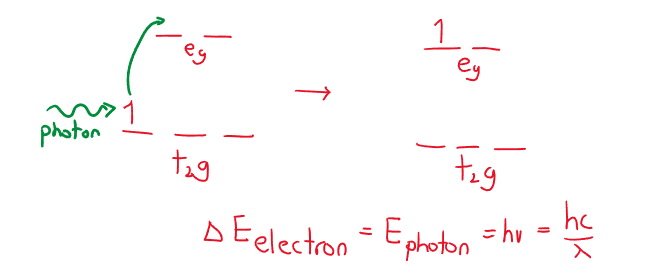 1
e₉
→
1
e₉
photon
1
t₂g
t₂g
ΔE electron = E photon = hν = hc/λ